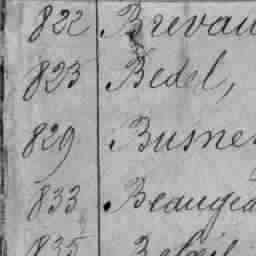 822 Brevau
823 Bedel,
829 Busne
833 Beaugea
835